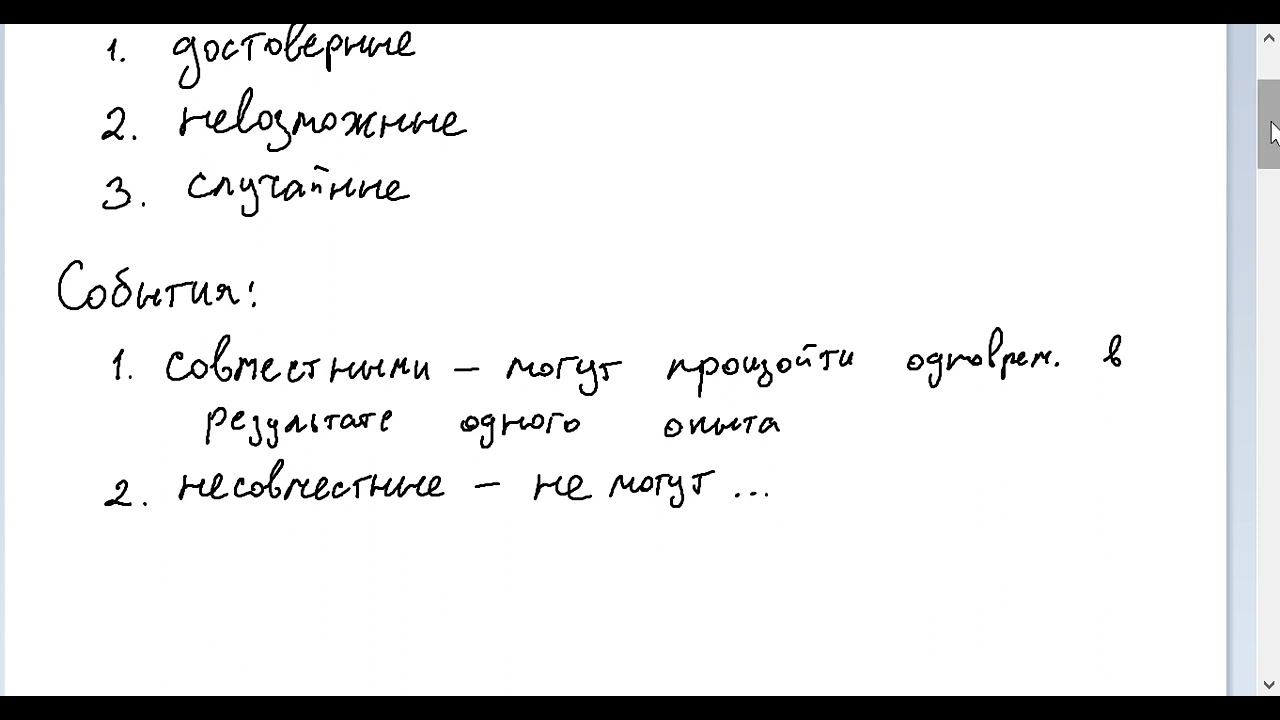 1. достоверные
2. невозможные
3. случайные
События:
1. совместными – могут произойти одноврем. в
результате одного опыта
2. несовместные – не могут ...